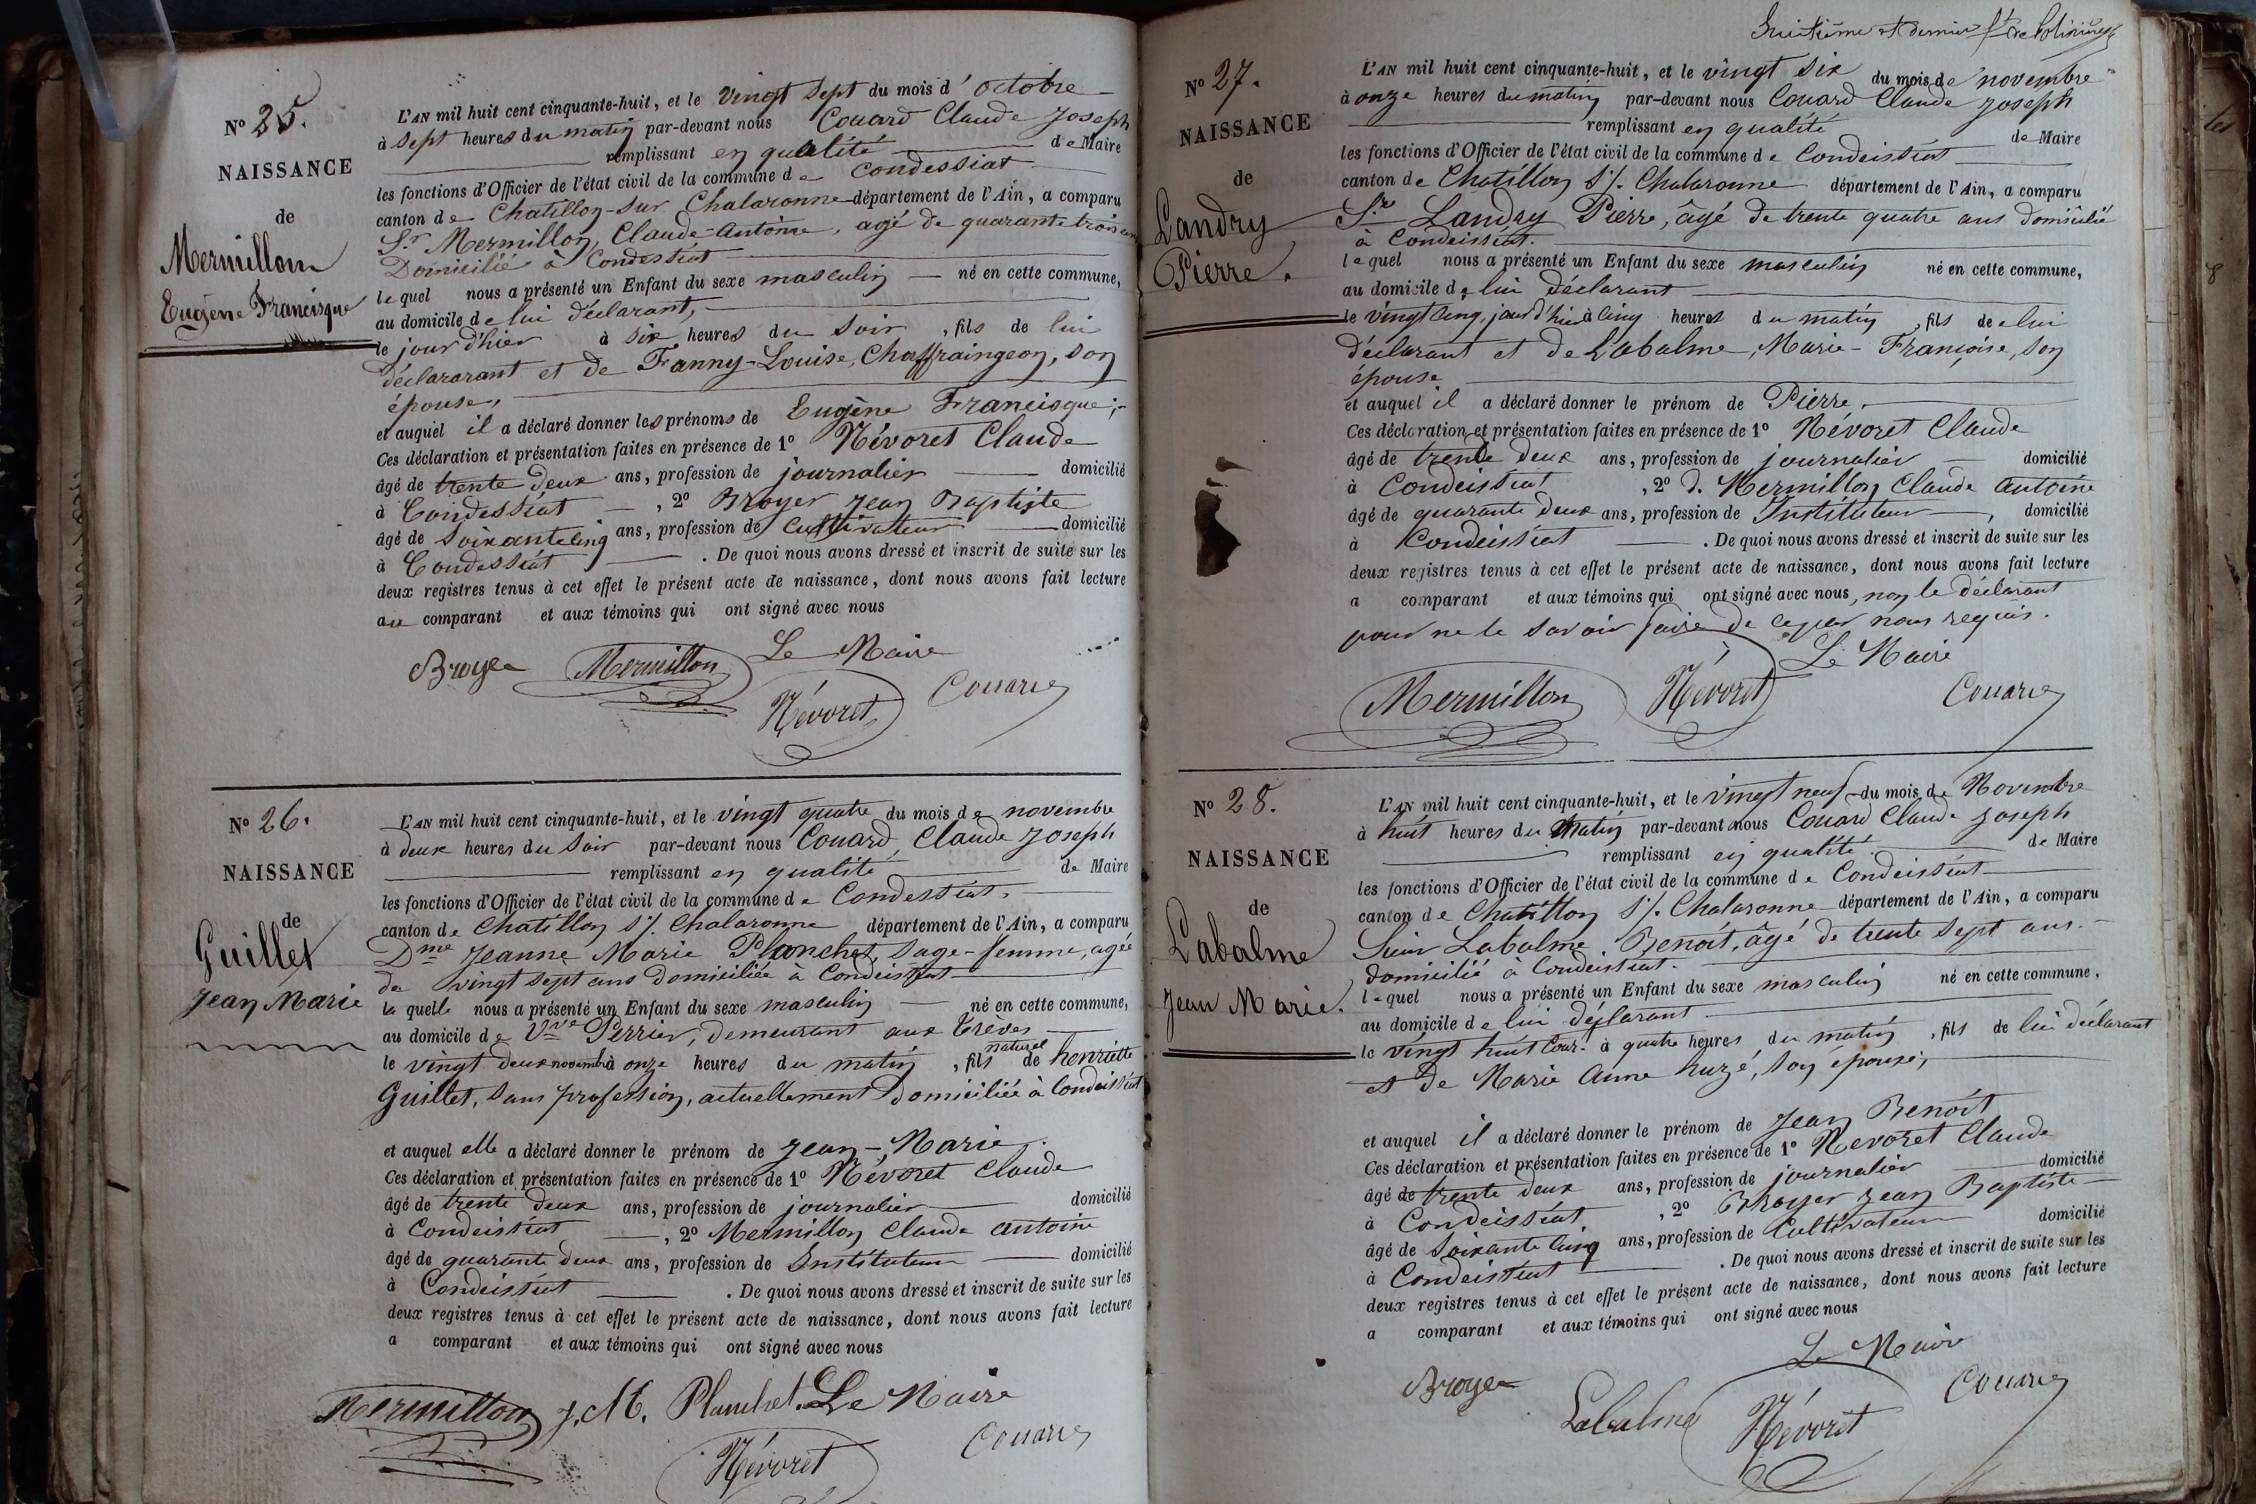 N° 25.
NAISSANCE
de
Mermillon
Eugène Francisque
L'AN mil huit cent cinquante-huit, et le vingt sept du mois d'octobre
à sept heures du matin par-devant nous Couard Claude Joseph
remplissant en qualité de Maire
les fonctions d'Officier de l'état civil de la commune de Condessiat
canton de Chatillon-sur Chalaronne département de l'Ain, a comparu
Sr Mermillon, Claude-Antoine, agé de quarante trois ans
Domicilié à Condessiat
lequel nous a présenté un Enfant du sexe masculin né en cette commune,
au domicile de lui déclarant,
le jour d'hier à six heures du soir, fils de lui
déclararant et de Fanny-Louise, Chaffraingeon, son
épouse,
et auquel il a déclaré donner les prénoms de Eugène Francisque;
Ces déclaration et présentation faites en présence de 1° Névoret Claude
âgé de trente deux ans, profession de journalier domicilié
à Condessiat, 2° Broyer Jean Baptiste
âgé de soixante cinq ans, profession de cultivateur domicilié
à Condessiat. De quoi nous avons dressé et inscrit de suite sur les
deux registres tenus à cet effet le présent acte de naissance, dont nous avons fait lecture
au comparant et aux témoins qui ont signé avec nous
Le Maire
Broyer Mermillon
Névoret Couard
N° 26.
NAISSANCE
de
Guillet
Jean Marie
L'AN mil huit cent cinquante-huit, et le vingt quatre du mois de novembre
à deux heures du soir par-devant nous Couard, Claude Joseph
remplissant en qualité de Maire
les fonctions d'Officier de l'état civil de la commune de Condessiat,
canton de Chatillon s/. Chalaronne département de l'Ain, a comparu
Dme Jeanne Marie Planchet, sage-femme, agée
de vingt sept ans domiciliée à Condeissiat
la quelle nous a présenté un Enfant du sexe masculin né en cette commune,
au domicile de Vve Perrier, demeurant aux Crèves
le vingt deux novembre à onze heures du matin, fils naturel de henriette
Guillet, sans profession, actuellement domiciliée à Condeissiat
et auquel elle a déclaré donner le prénom de Jean-Marie.
Ces déclaration et présentation faites en présence de 1° Névoret Claude
âgé de trente deux ans, profession de journalier domicilié
à Condeissiat, 2° Mermillon Claude Antoine
âgé de quarante deux ans, profession de Instituteur domicilié
à Condeissiat. De quoi nous avons dressé et inscrit de suite sur les
deux registres tenus à cet effet le présent acte de naissance, dont nous avons fait lecture
a comparant et aux témoins qui ont signé avec nous
Mermillon J. M. Planchet. Le Maire
Névoret Couard
huitième et dernier
N° 27.
NAISSANCE
de
Landry
Pierre.
L'AN mil huit cent cinquante-huit, et le vingt six du mois de novembre
à onze heures du matin par-devant nous Couard Claude Joseph
remplissant en qualité de Maire
les fonctions d'Officier de l'état civil de la commune de Condeissiat
canton de Chatillon s/. Chalaronne département de l'Ain, a comparu
Sr Landry Pierre, âgé de trente quatre ans domicilié
à Condeissiat.
lequel nous a présenté un Enfant du sexe masculin né en cette commune,
au domicile de lui déclarant
le vingt cinq, jour d'hier à cinq heures du matin, fils de lui
déclarant et de Labalme, Marie-Françoise, son
épouse
et auquel il a déclaré donner le prénom de Pierre.
Ces déclaration et présentation faites en présence de 1° Névoret Claude
âgé de trente deux ans, profession de journalier domicilié
à Condeissiat, 2° d. Mermillon Claude Antoine
âgé de quarante deux ans, profession de Instituteur, domicilié
à Condeissiat. De quoi nous avons dressé et inscrit de suite sur les
deux registres tenus à cet effet le présent acte de naissance, dont nous avons fait lecture
a comparant et aux témoins qui ont signé avec nous, non le déclarant
pour ne le savoir faire de ce par nous requis.
Le Maire
Mermillon Névoret Couard
N° 28.
NAISSANCE
de
Labalme
Jean Marie.
L'AN mil huit cent cinquante-huit, et le vingt neuf du mois de Novembre
à huit heures du Matin par-devant nous Couard Claude Joseph
remplissant en qualité de Maire
les fonctions d'Officier de l'état civil de la commune de Condeissiat
canton de Chatillon s/. Chalaronne département de l'Ain, a comparu
Sieur Labalme Benoit, âgé de trente sept ans.
domicilié à Condeissiat.
lequel nous a présenté un Enfant du sexe masculin né en cette commune,
au domicile de lui déclarant
le vingt huit Cour. à quatre heures du matin, fils de lui déclarant
et de Marie Anne huzé, son épouse;
et auquel il a déclaré donner le prénom de Jean Benoit
Ces déclaration et présentation faites en présence de 1° Nevoret Claude
âgé de trente deux ans, profession de journalier domicilié
à Condeissiat, 2° Broyer Jean Baptiste
âgé de soixante cinq ans, profession de Cultivateur domicilié
à Condeissiat. De quoi nous avons dressé et inscrit de suite sur les
deux registres tenus à cet effet le présent acte de naissance, dont nous avons fait lecture
a comparant et aux témoins qui ont signé avec nous
Le Maire
Broyer Labalme Névoret Couard